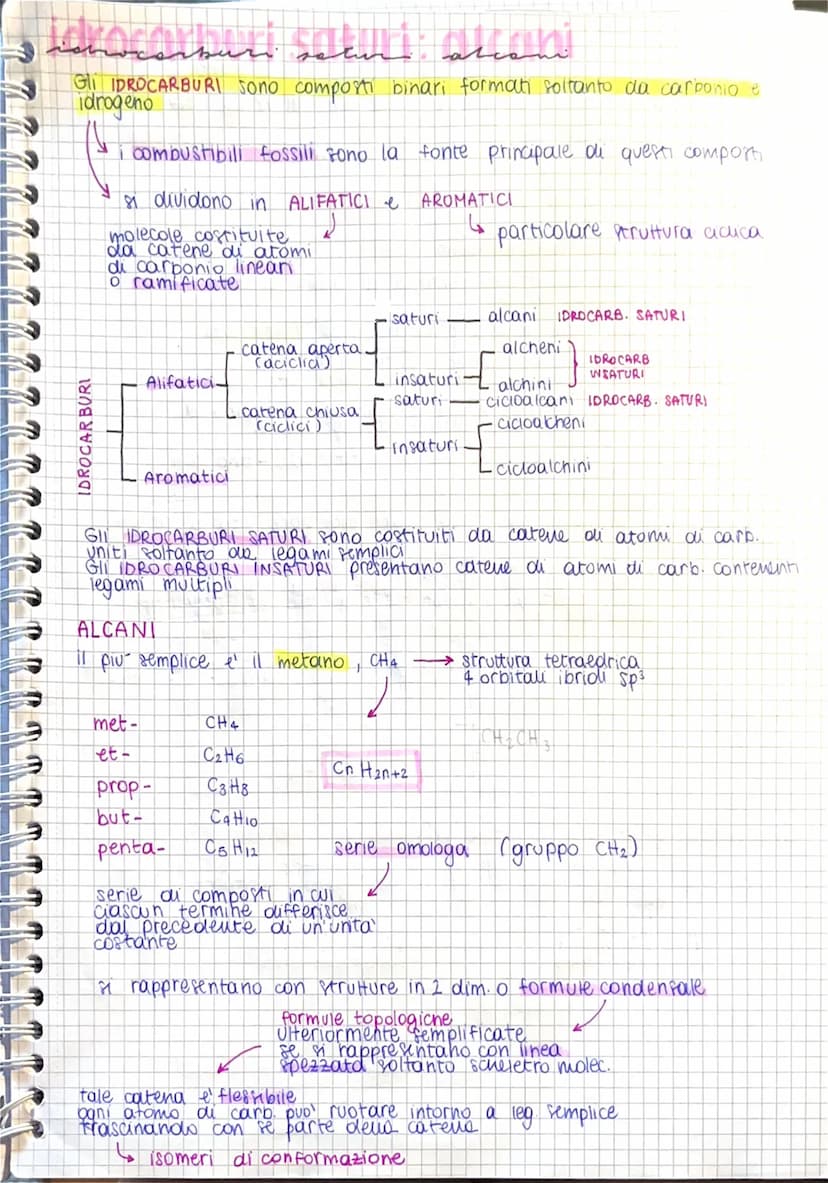 idrocarburi saturi: alcani
Gli IDROCARBURI sono composti binari formati soltanto da carbonio e
idrogeno
i combustibili fossili sono la fonte principale di questi composti
si dividono in ALIFATICI e AROMATICI
molecole costituite
da catene di atomi
di carbonio lineari
o ramificate
particolare struttura ciclica
IDROCARBURI
Alifatici
catena aperta
(aciclici)
saturi
alcani IDROCARB. SATURI
insaturi
alcheni
alchini
IDROCARB
INSATURI
catena chiusa
(ciclici)
saturi
cicloalcani IDROCARB. SATURI
insaturi
cicloalcheni
cicloalchini
Aromatici
Gli IDROCARBURI SATURI sono costituiti da catene di atomi di carb.
uniti soltanto da legami semplici
Gli IDROCARBURI INSATURI presentano catene di atomi di carb. contenenti
legami multipli
ALCANI
il più semplice e' il metano, CH4 → struttura tetraedrica
4 orbitali ibridi sp³
met- CH4
CH2CH3
et- C2H6
CnH2n+2
prop- C3H8
but- C4H10
penta- C5H12 serie omologa (gruppo CH2)
serie di composti in cui
ciascun termine differisce
dal precedente di un'unita'
costante
si rappresentano con strutture in 2 dim. o formule condensate
formule topologiche
ulteriormente semplificate
se si rappresentano con linea
spezzata soltanto scheletro molec.
tale catena e' flessibile
ogni atomo di carb. puo' ruotare intorno a leg. semplice
trascinando con se parte della catena
isomeri di conformazione